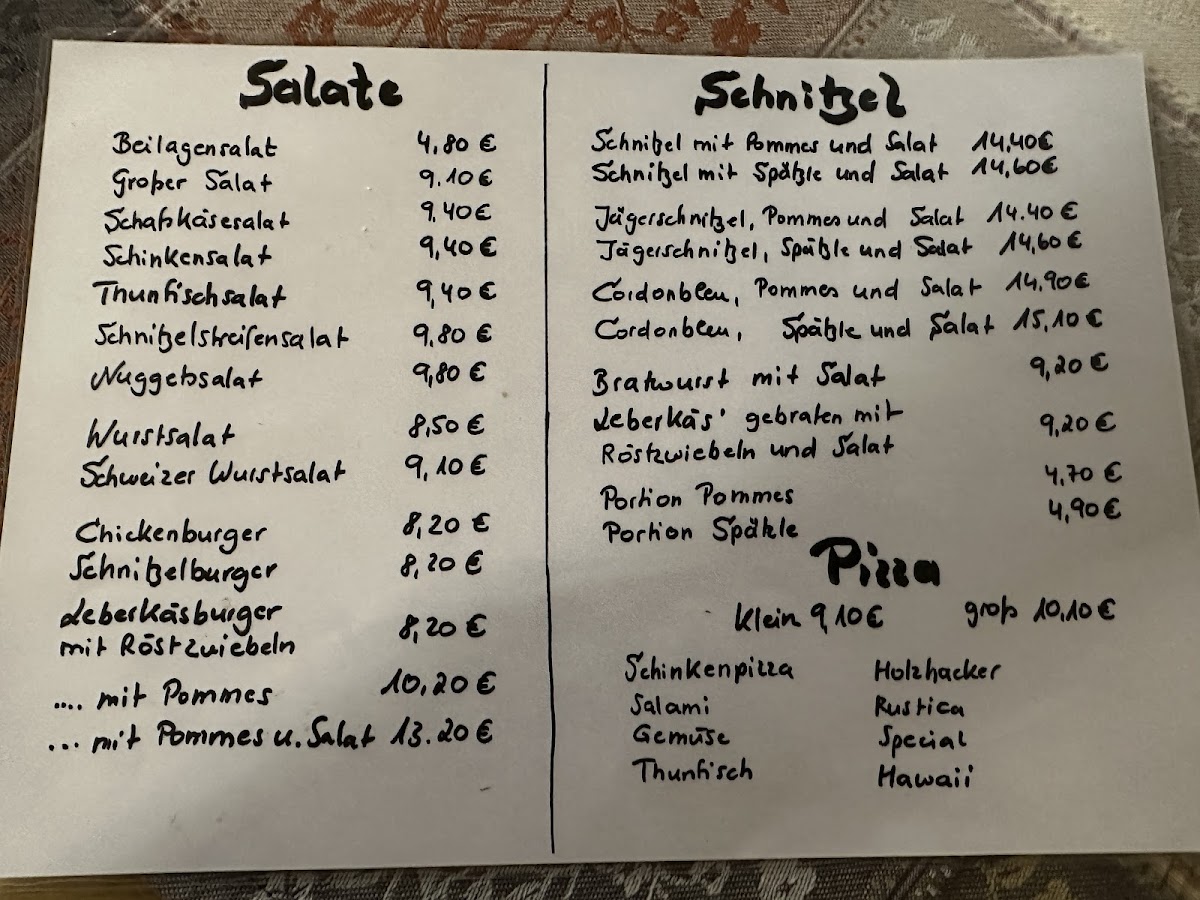 Salate
Beilagensalat 4,80 €
Großer Salat 9.10 €
Schafskäsesalat 9,40 €
Schinkensalat 9,40 €
Thunfischsalat 9,40 €
Schnitzelstreifensalat 9,80 €
Nuggetssalat 9,80 €
Wurstsalat 8,50 €
Schweizer Wurstsalat 9,10 €
Chickenburger 8,20 €
Schnitzelburger 8,20 €
Leberkäsburger
mit Röstzwiebeln 8,20 €
.... mit Pommes 10,20 €
... mit Pommes u. Salat 13.20 €
Schnitzel
Schnitzel mit Pommes und Salat 14,40 €
Schnitzel mit Spätzle und Salat 14,60 €
Jägerschnitzel, Pommes und Salat 14.40 €
Jägerschnitzel, Spätzle und Salat 14,60 €
Cordonbleu, Pommes und Salat 14,90 €
Cordonbleu, Spätzle und Salat 15,10 €
Bratwurst mit Salat 9,20 €
Leberkäs' gebraten mit
Röstzwiebeln und Salat 9,20 €
Portion Pommes 4,70 €
Portion Spätzle 4,90 €
Pizza
Klein 9,10 € groß 10,10 €
Schinkenpizza Holzhacker
Salami Rustica
Gemüse Special
Thunfisch Hawaii